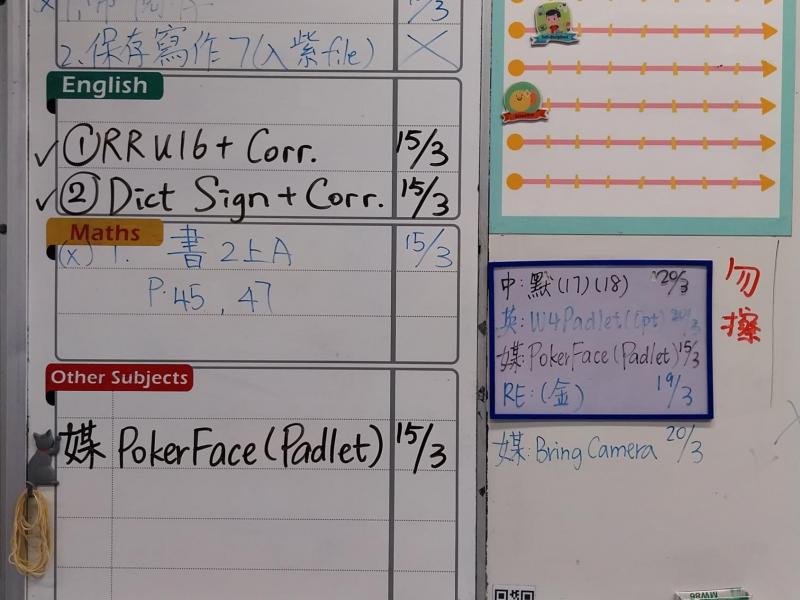 15/3
2.保存寫作7(入紫file) ×
English
✓ ① RR U16 + Corr. 15/3
✓ ② Dict Sign + Corr. 15/3
Maths
(x) 1. 書 2上A 15/3
P. 45, 47
Other Subjects
媒 PokerFace (Padlet) 15/3
中: 默(17)(18) 20/3
英: W4 Padlet (Opt) 20/3
媒: PokerFace (Padlet) 15/3
RE: (金) 19/3
勿擦
媒: Bring Camera 20/3